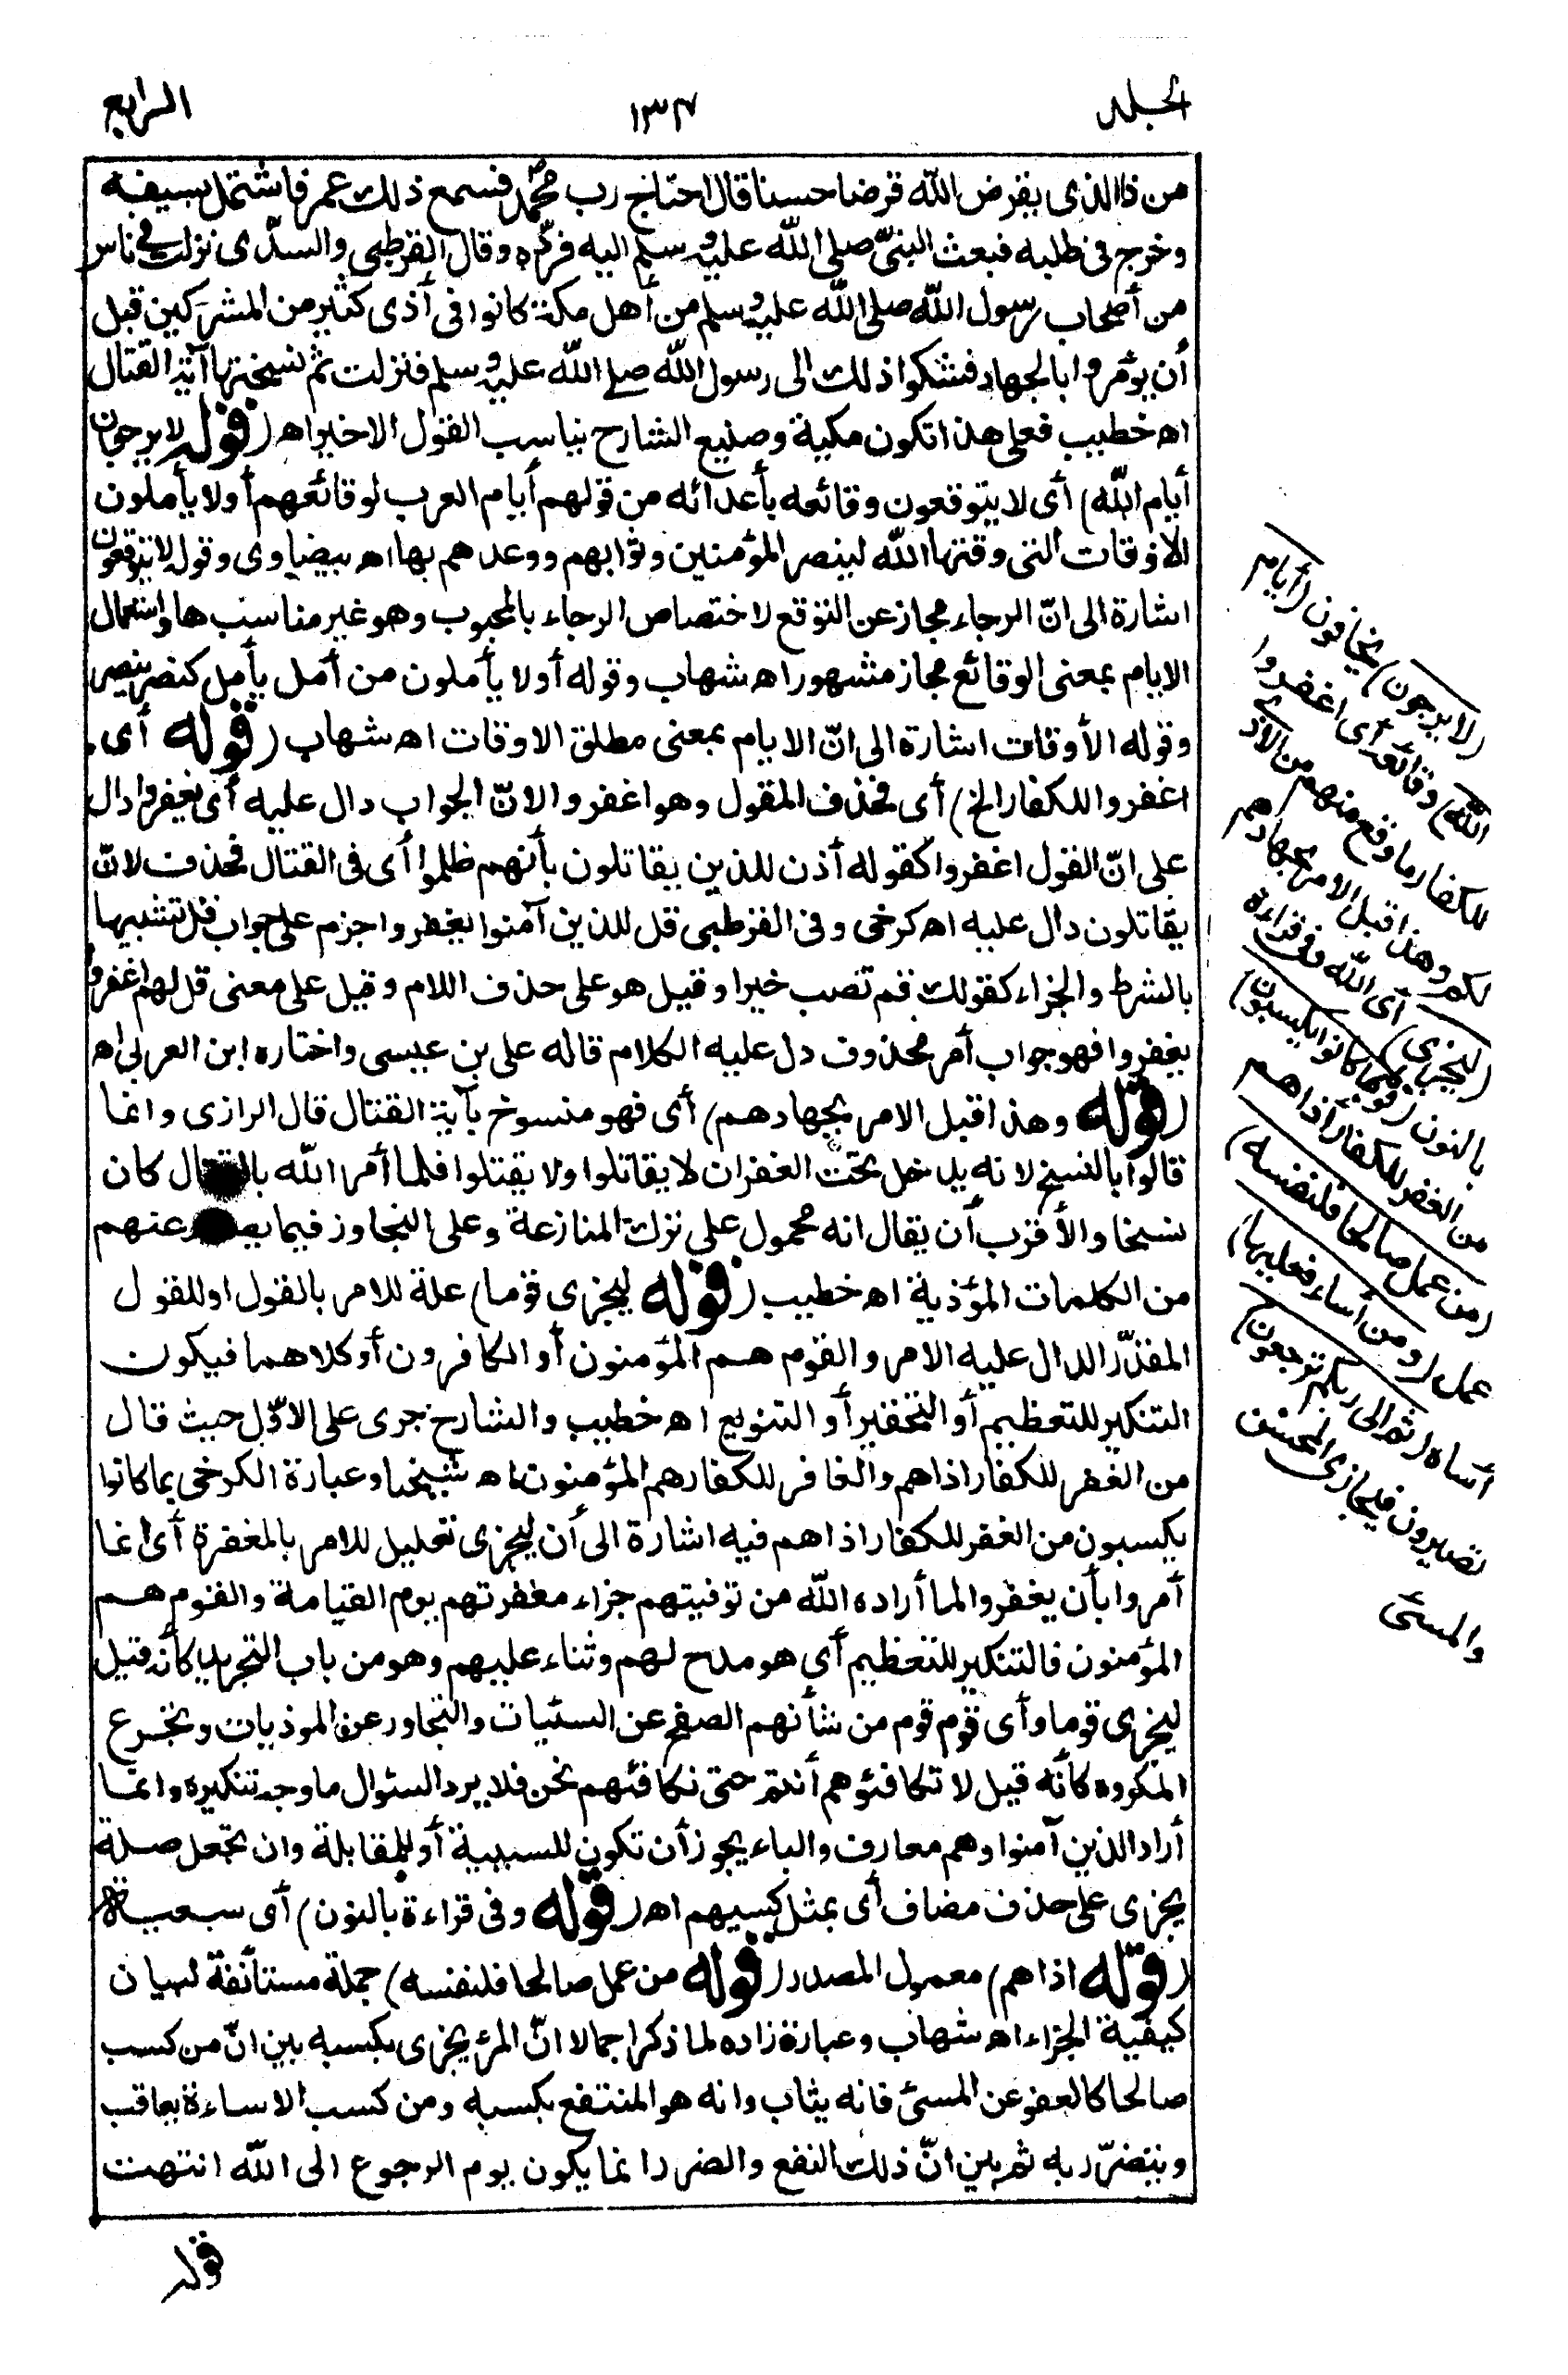 الجلد ١٣٤ الرابع
من ذا الذى يقرض الله قرضا حسنا قال احتاج رب محمد فسمع ذلك عمر فاشتمل بسيفه
وخرج فى طلبه فبعث النبىّ صلى الله عليه وسلم اليه فردّه وقال القرطبى والسدّى نزلت فى ناس
من أصحاب رسول الله صلى الله عليه وسلم من أهل مكة كانوا فى أذى كثير من المشركين قبل
أن يؤمروا بالجهاد فشكوا ذلك الى رسول الله صلى الله عليه وسلم فنزلت ثم نسختها آية القتال
اه خطيب فعلى هذا تكون مكية وصنيع الشارح يناسب القول الاخير اه (قوله لا يرجون
أيام الله) أى لا يتوقعون وقائعه بأعدائه من قولهم أيام العرب لوقائعهم أو لا يأملون
الاوقات التى وقتها الله لينصر المؤمنين وثوابهم ووعدهم بها اه بيضاوى وقوله لا يتوقعون
اشارة الى انّ الرجاء مجاز عن التوقع لاختصاص الرجاء بالمحبوب وهو غير مناسب هنا واستعمال
الايام بمعنى الوقائع مجاز مشهور اه شهاب وقوله أو لا يأملون من أمل يأمل كنصر ينصر
وقوله الأوقات اشارة الى انّ الايام بمعنى مطلق الاوقات اه شهاب (قوله أى
اغفروا للكفار الخ) أى فحذف المقول وهو اغفروا لانّ الجواب دال عليه أى يغفروا دال
على انّ القول اغفروا كقوله أذن للذين يقاتلون بأنهم ظلموا أى فى القتال فحذف لانّ
يقاتلون دال عليه اه كرخى وفى القرطبى قل للذين آمنوا يغفروا جزم على جواب قل تشبيها
بالشرط والجزاء كقولك قم تصب خيرا وقيل هو على حذف اللام وقيل على معنى قل لهم اغفروا
يغفروا فهو جواب أمر محذوف دل عليه الكلام قاله على بن عيسى واختاره ابن العربى اه
(قوله وهذا قبل الامر بجهادهم) أى فهو منسوخ بآية القتال قال الرازى وانما
قالوا بالنسخ لانه يدخل تحت الغفران لا يقاتلوا ولا يقتلوا فلما أمر الله بالقتال كان
نسخا والأقرب أن يقال انه محمول على ترك المنازعة وعلى التجاوز فيما يصدر عنهم
من الكلمات المؤذية اه خطيب (قوله ليجزى قوما) علة للامر بالقول او للقول
المقدّر الدال عليه الامر والقوم هم المؤمنون أو الكافرون أو كلاهما فيكون
التنكير للتعظيم أو التحقير أو التنويع اه خطيب والشارح جرى على الاوّل حيث قال
من الغفر للكفار اذاهم والغافر للكفارهم المؤمنون اه شيخنا وعبارة الكرخى بما كانوا
يكسبون من الغفر للكفار اذاهم فيه اشارة الى أن ليجزى تعليل للامر بالمغفرة أى انما
أمروا بأن يغفروا لما أراده الله من توفيتهم جزاء مغفرتهم يوم القيامة والقوم هم
المؤمنون فالتنكير للتعظيم أى هو مدح لهم وثناء عليهم وهو من باب التجريد كأنه قيل
ليجزى قوما وأى قوم قوم من شأنهم الصفح عن السئيات والتجاوز عن الموذيات وتجرع
المكروه كأنه قيل لا تكافئوهم أنتم حتى نكافئهم نحن فلا يرد السئوال ما وجه تنكيره وانما
أراد الذين آمنوا وهم معارف والباء يجوز أن تكون للسببية أو للمقابلة وان تجعل صلة
يجزى على حذف مضاف أى بمثل كسبهم اه (قوله وفى قراءة بالنون) أى سبعية
(قوله اذاهم) معمول المصدر (قوله من عمل صالحا فلنفسه) جملة مستأنفة لبيان
كيفية الجزاء اه شهاب وعبارة زاده لما ذكر اجمالا انّ المرء يجزى بكسبه بين انّ من كسب
صالحا كالعفو عن المسئ فانه يثاب وانه هو المنتفع بكسبه ومن كسب الاساءة يعاقب
ويتضرّر به ثم بين انّ ذلك النفع والضرر انما يكون يوم الرجوع الى الله انتهت
قوله
(لا يرجون) يخافون (أيام
الله) وقائعه أى اغفروا
للكفار ما وقع منهم من الأذى
لكم وهذا قبل الامر بجهادهم
(ليجزى) أى الله وفى قراءة
بالنون (قوما بما كانوا يكسبون)
من الغفر للكفار أذاهم
(من عمل صالحا فلنفسه)
عمل (ومن أساء فعليها)
أساء (ثم الى ربكم ترجعون)
تصيرون فيجازى المحسن
والمسئ